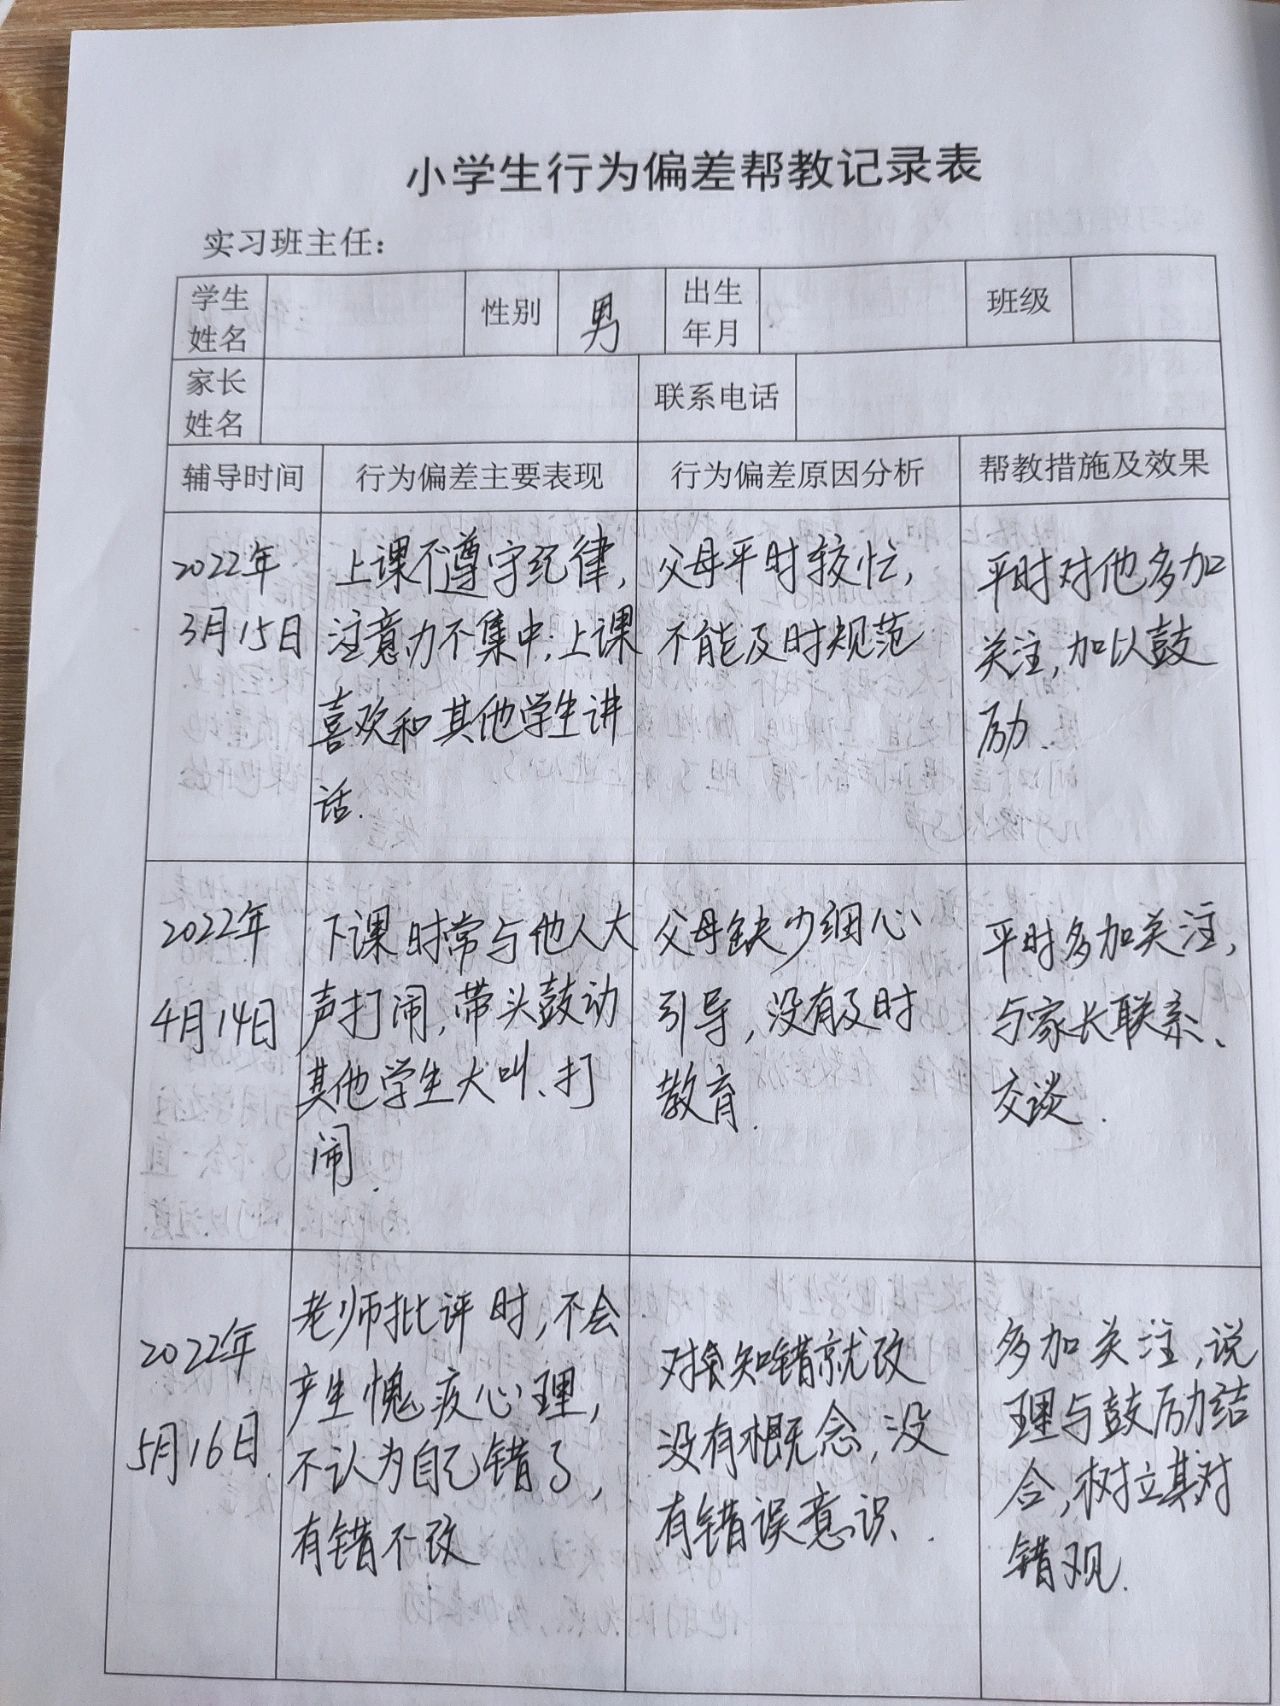 小学生行为偏差帮教记录表
实习班主任：
学生姓名 性别 男 出生年月 班级
家长姓名 联系电话
辅导时间 行为偏差主要表现 行为偏差原因分析 帮教措施及效果
2022年
3月15日
上课不遵守纪律，
注意力不集中；上课
喜欢和其他学生讲
话.
父母平时较忙，
不能及时规范
平时对他多加
关注，加以鼓
励.
2022年
4月14日
下课时常与他人大
声打闹，带头鼓动
其他学生大叫、打
闹.
父母缺少细心
引导，没有及时
教育.
平时多加关注，
与家长联系、
交谈.
2022年
5月16日.
老师批评时，不会
产生愧疚心理，
不认为自己错了，
有错不改
对知错就改
没有概念，没
有错误意识.
多加关注，说
理与鼓励结
合，树立其对
错观.